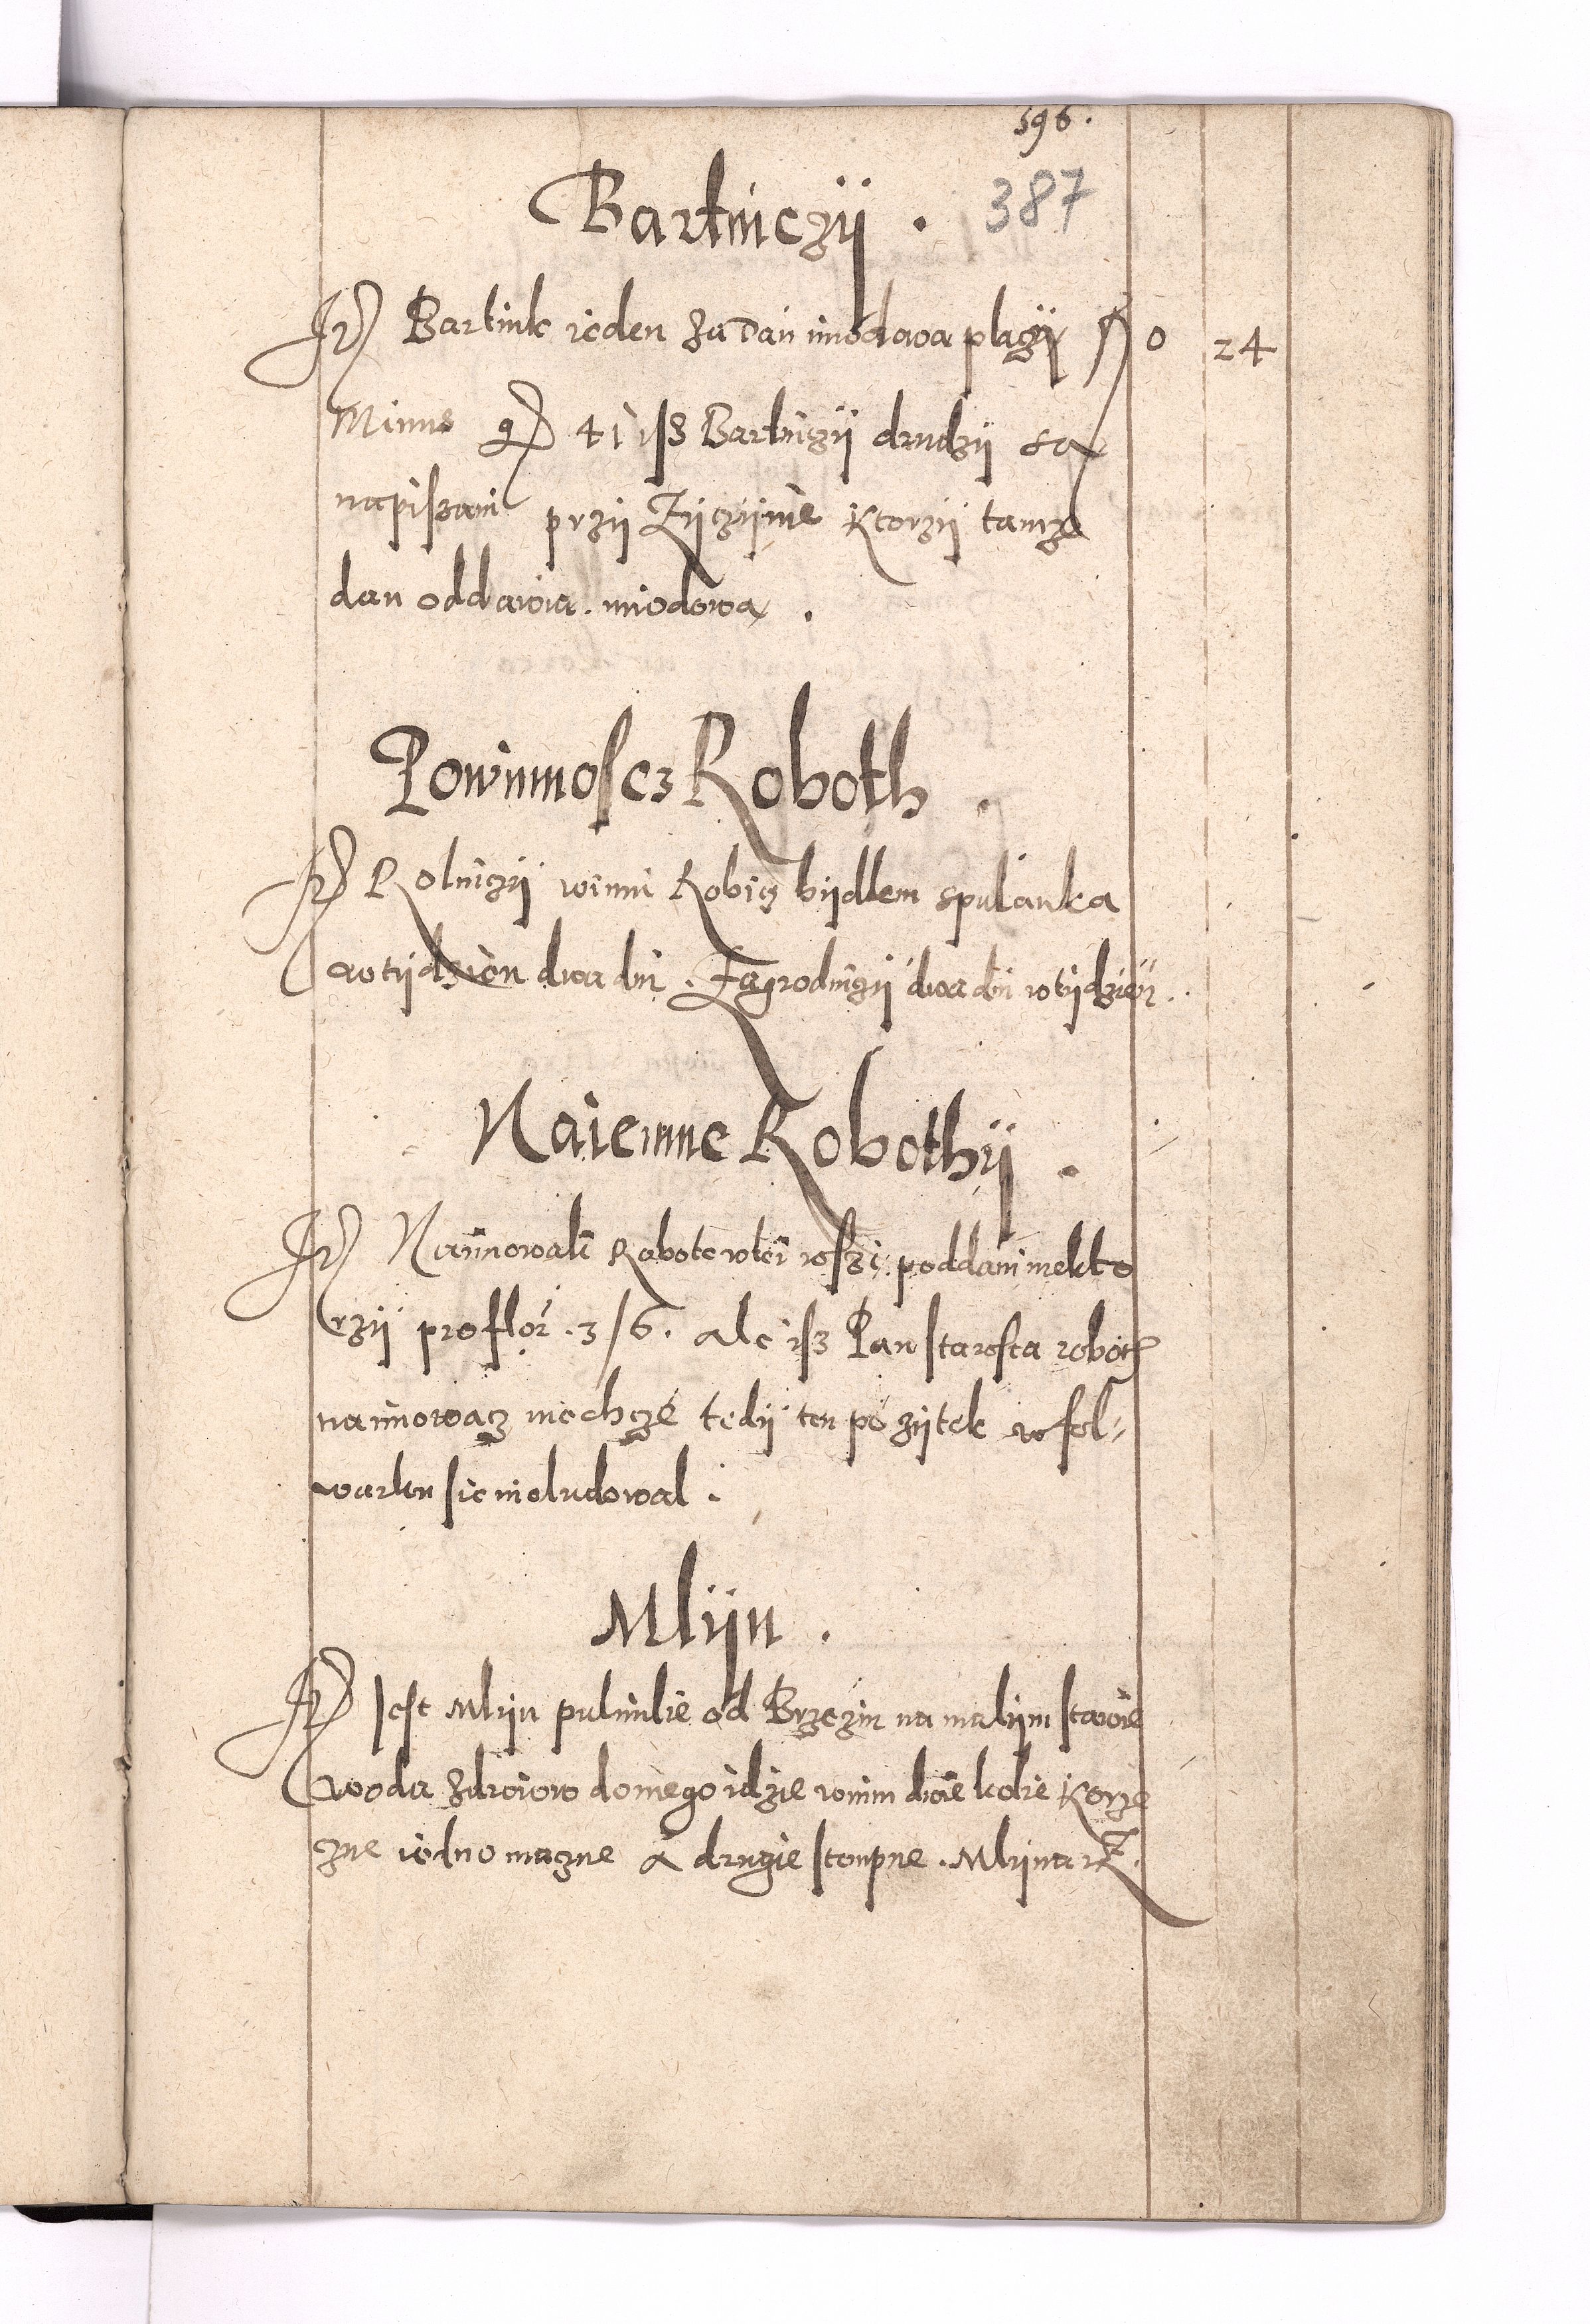 596.
387
Bartniczÿ .
It Bartnik ieden za dan miodowa placzÿ fl 0 24
Minus gr 41 isz Bartniczÿ drudzÿ sa
napiszani przÿ Zÿczÿnie Ktorzÿ tamze
dan oddawia . miodowa .
Powinnoscz Roboth .
It Rolniczÿ winni Robicz bÿdlem spulanka
wtÿdzien dwa dni . Zagrodniczÿ dwa dni wtÿdzien .
Naiemne Robothÿ .
It Naimowali Robote wtei wszi poddani niekto
rzÿ pro flor . 3/6 . ale isz Pan starosta roboth
naimowacz niechcze tedÿ ten pozÿtek wfol-
warku sie nie ludowal .
Mlÿn .
It Jest Mlÿn pulmilie od Brzezin na malÿm stawie
woda zdroiow do niego idzie wnim dwie kolie Korze
zne iedno maczne a drugie stempne . Mlÿnarz .